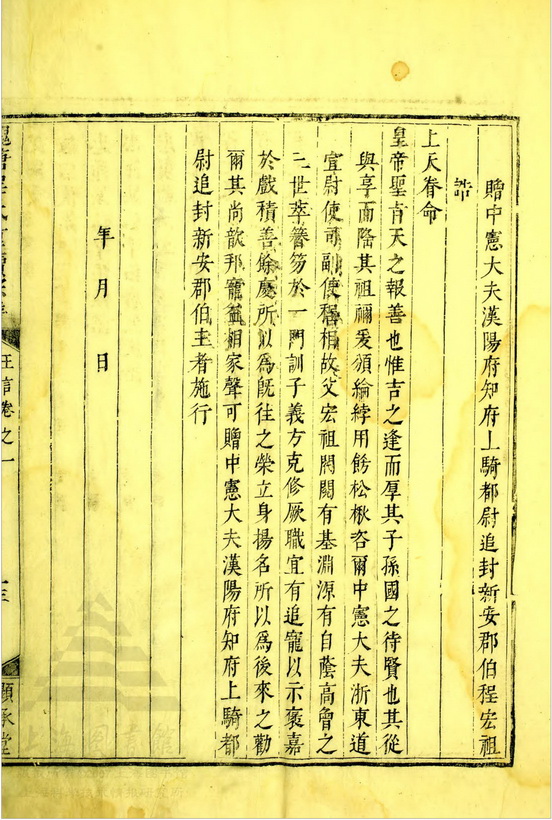 贈中憲大夫漢陽府知府上騎都尉追封新安郡伯程宏祖
誥
上天眷命
皇帝聖旨天之報善也惟吉之逢而厚其子孫國之待賢也其從
與享而隆其祖禰爰頒綸綍用飭松楸咨爾中憲大夫浙東道
宣慰使司副使程相故父宏祖閥閱有基淵源有自蔭高曾之
二世萃簪笏於一門訓子義方克修厥職宜有追寵以示褒嘉
於戲積善餘慶所以為旣往之榮立身揚名所以為後來之勸
爾其尚歆邦寵益相家聲可贈中憲大夫漢陽府知府上騎都
尉追封新安郡伯主者施行
年 月 日
王言卷之一
顯承堂